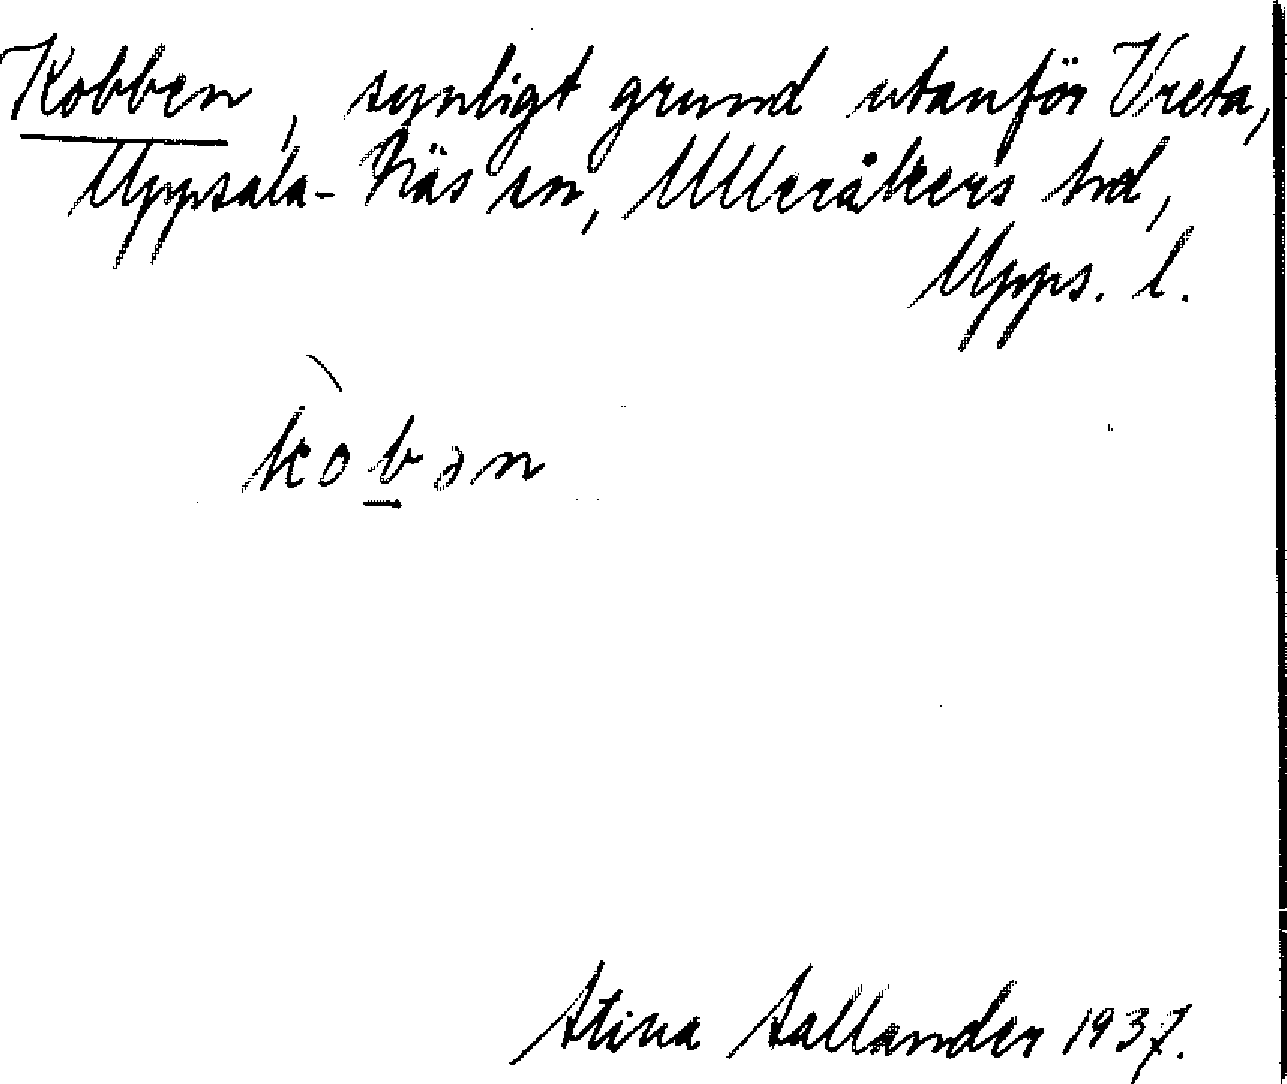 Kobben, synligt grund utanför Vreta,
Uppsala-Näs sn, Ulleråkers hd,
Upps. l.
kòb̲ən
Stina Sallander 1937.